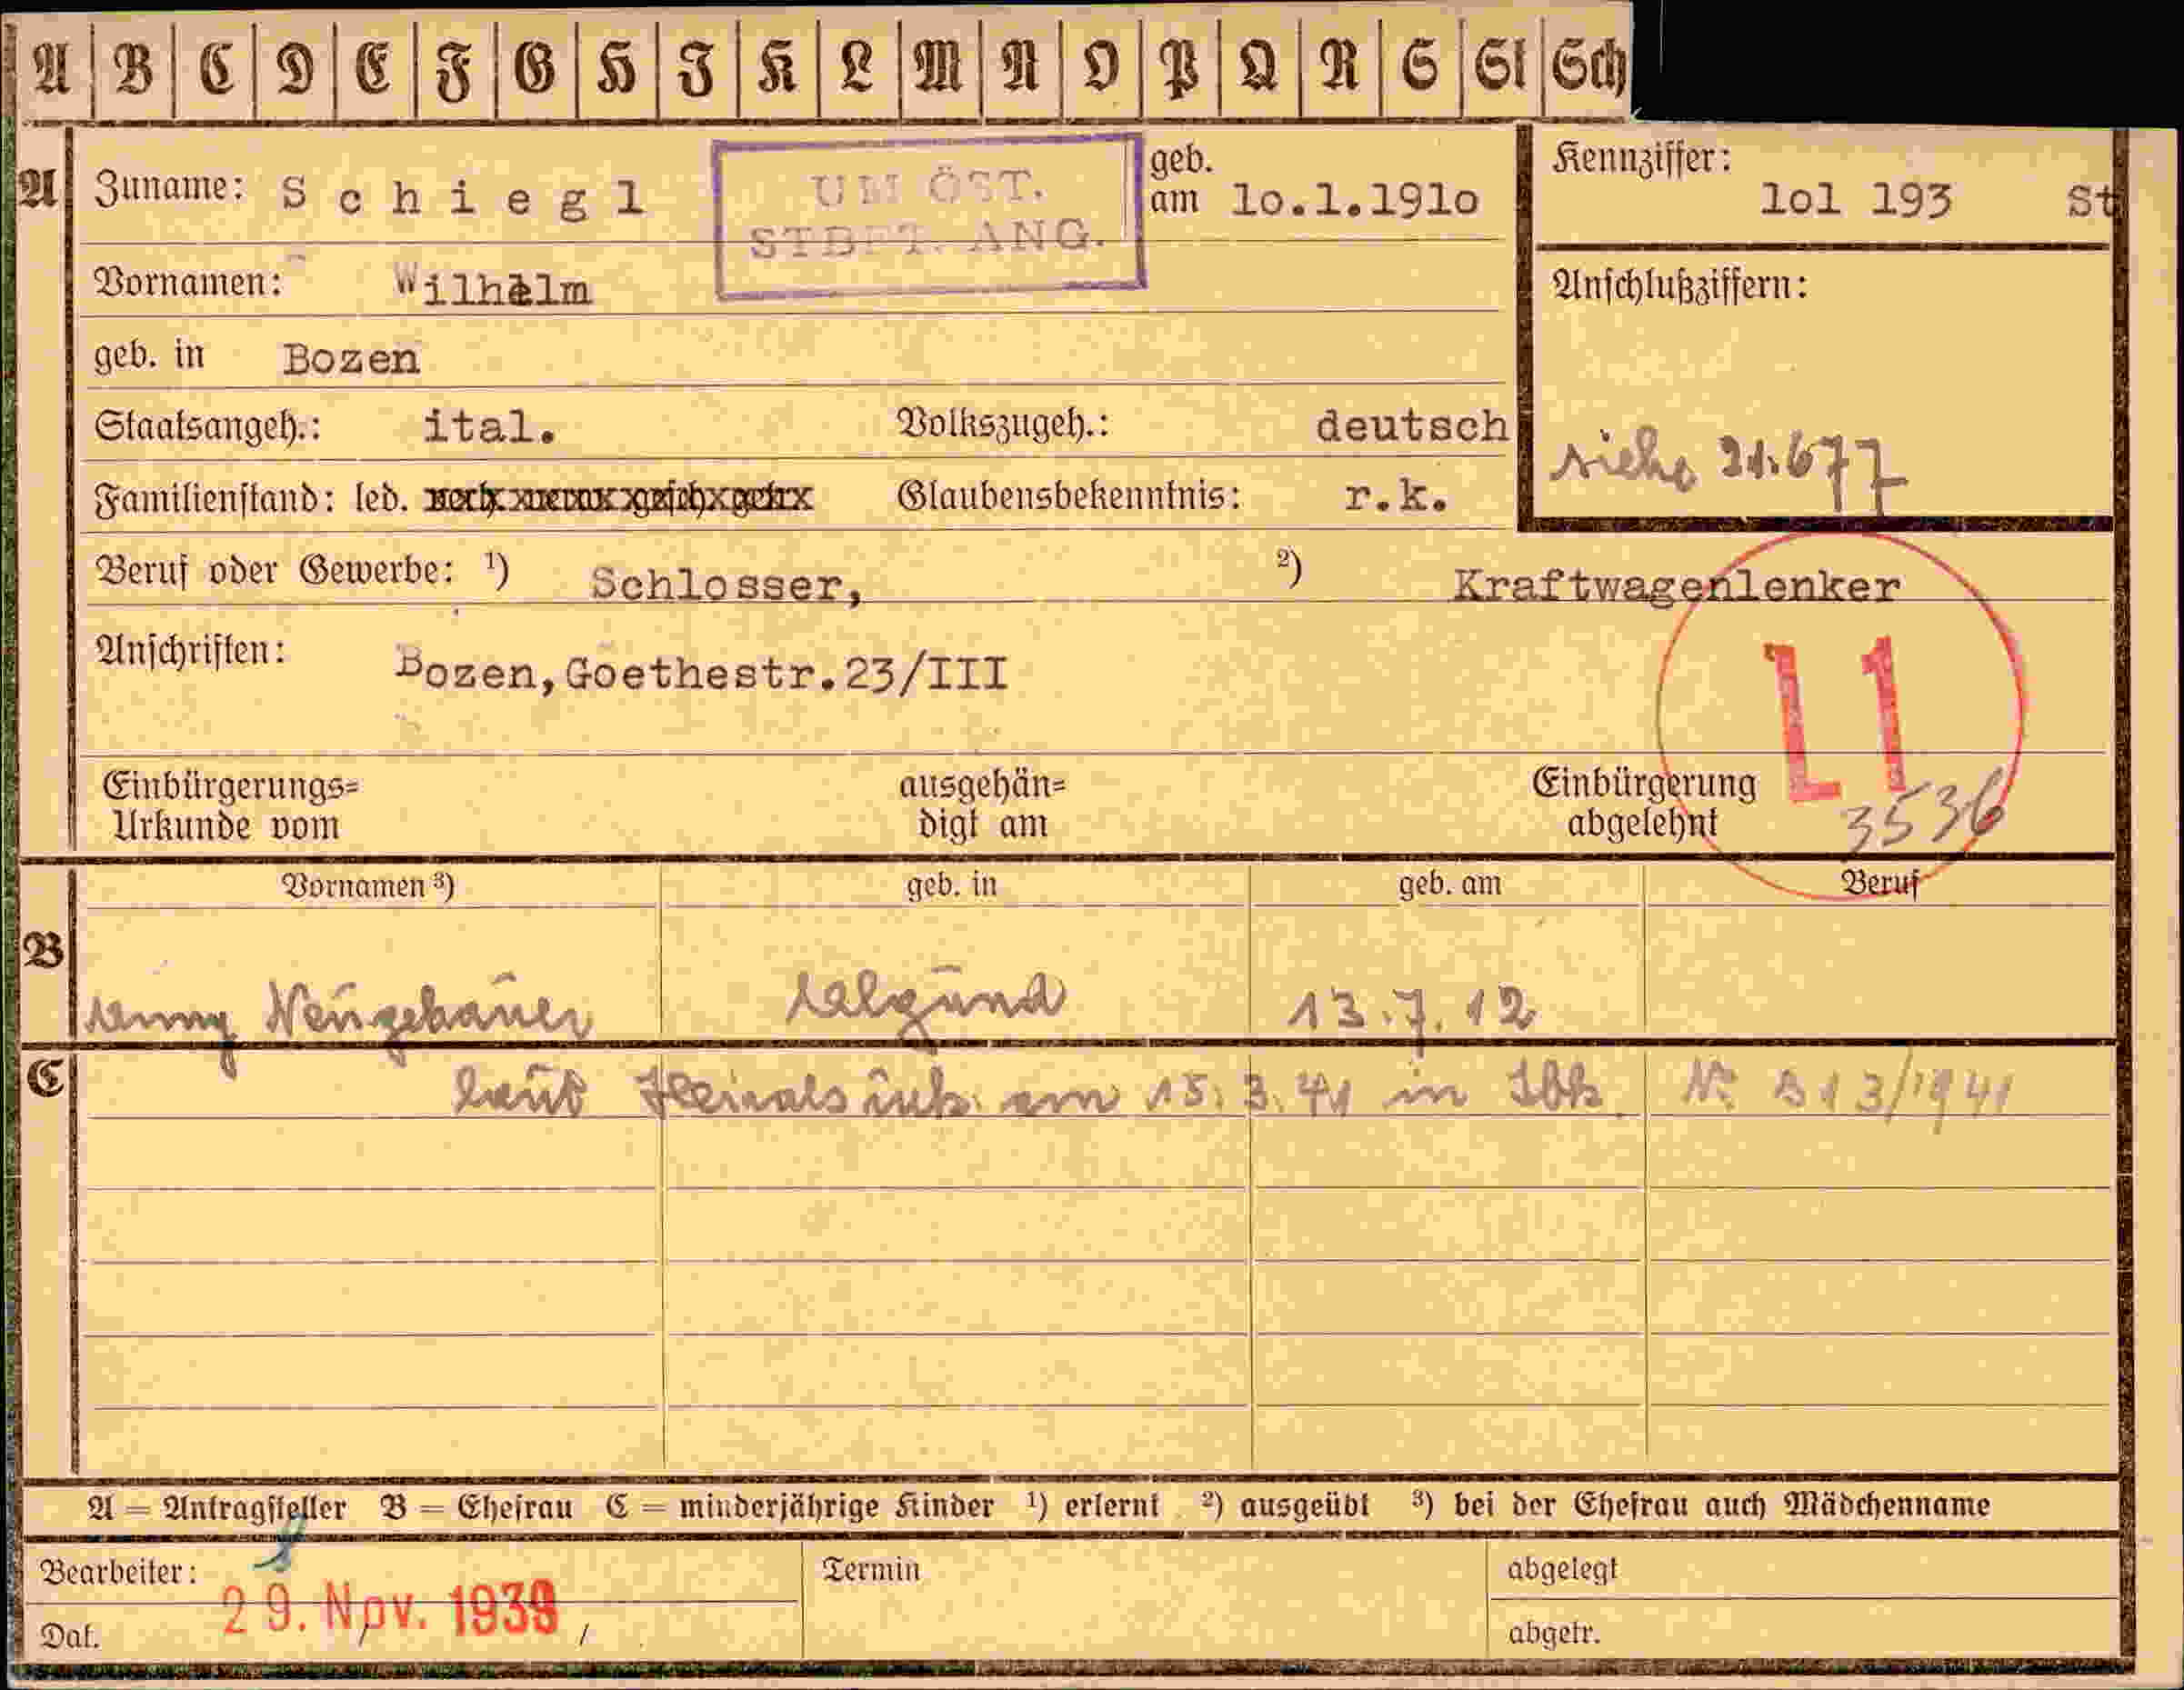 A B C D E F G H J K L M N O P Q R S St Sch
A Zuname: Schiegl
UM ÖST.
STBFT. ANG.
geb. am 10.1.1910
Kennziffer: lol 193 St
Vornamen: Wilhelm
Anschlußziffern:
geb. in Bozen
Staatsangeh.: ital. Volkszugeh.: deutsch
siehe 21.677
Familienstand: led. Glaubensbekenntnis: r.k.
Beruf oder Gewerbe: ¹) Schlosser, ²) Kraftwagenlenker
Anschriften: Bozen,Goethestr.23/III
L1
Einbürgerungs= ausgehän= Einbürgerung
Urkunde vom digt am abgelehnt 3536
Vornamen ³) geb. in geb. am Beruf
B
Neugebauer Algund 13.7.12
C
laut am 15.3.41 in Ibk. Nr 313/1941
A = Antragsteller B = Ehefrau C = minderjährige Kinder ¹) erlernt ²) ausgeübt ³) bei der Ehefrau auch Mädchenname
Bearbeiter: Termin abgelegt
29. Nov. 1939
Dat. abgetr.